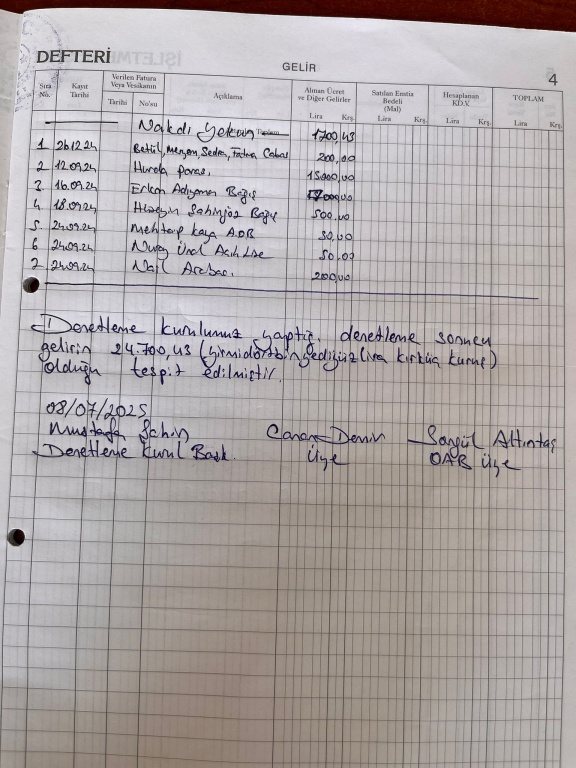 DEFTERİ
GELİR
4
Sıra No.
Kayıt Tarihi
Verilen Fatura Veya Vesikanın
Tarihi
No'su
Açıklama
Alınan Ücret ve Diğer Gelirler
Lira Krş.
Satılan Emtia Bedeli (Mal)
Lira Krş.
Hesaplanan KD.V.
Lira Krş.
TOPLAM
Lira Krş.
Nakdi Yekün Toplam 1700,43
1 26.12.24 Betül, Meryem, Sedra, Fatma Cabas 200,00
2 12.09.24 Hurda parası 15000,00
3 16.09.24 Erkan Adıyaman Bağış 7000,00
4 18.09.24 Hüseyin Şahingöz Bağış 500,00
5 24.09.24 Mehtap Kaya AÖB 50,00
6 24.09.24 Nuray Ünal Açık Lise 50,00
7 24.09.24 Nail Arabacı 200,00
Denetleme kurulumuz yaptığı denetleme sonucu
gelirin 24.700,43 (yirmidörtbinyediyüzlira kırküç kuruş)
olduğu tespit edilmiştir.
08/07/2025
Mustafa Şahin Canan Demir Songül Altıntaş
Denetleme Kurul Başk. Üye OAB Üye